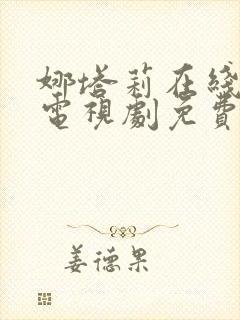 娜塔莉在线
電視劇免費
姜德果